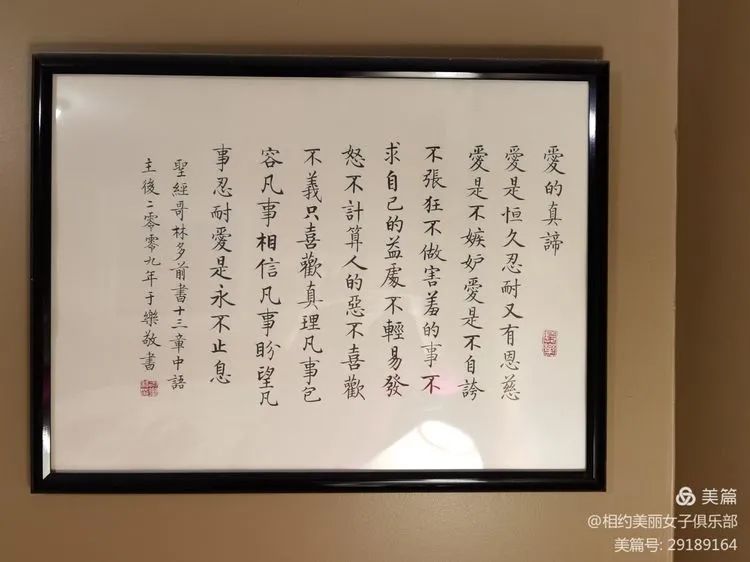 愛的真諦
愛是恒久忍耐又有恩慈
愛是不嫉妒愛是不自誇
不張狂不做害羞的事不
求自己的益處不輕易發
怒不計算人的惡不喜歡
不義只喜歡真理凡事包
容凡事相信凡事盼望凡
事忍耐愛是永不止息
聖經哥林多前書十三章中語
主後二零零九年于樂敬書
美篇
@相约美丽女子俱乐部
美篇号: 29189164